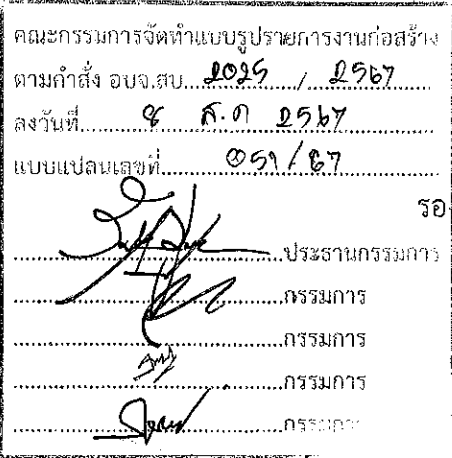 คณะกรรมการจัดทำแบบรูปรายการงานก่อสร้าง
ตามคำสั่ง อบจ.สบ. 2025 / 2567
ลงวันที่ 8 ส.ค 2567
แบบแปลนเลขที่ 051/67
รอ
ประธานกรรมการ
กรรมการ
กรรมการ
กรรมการ
กรรมการ